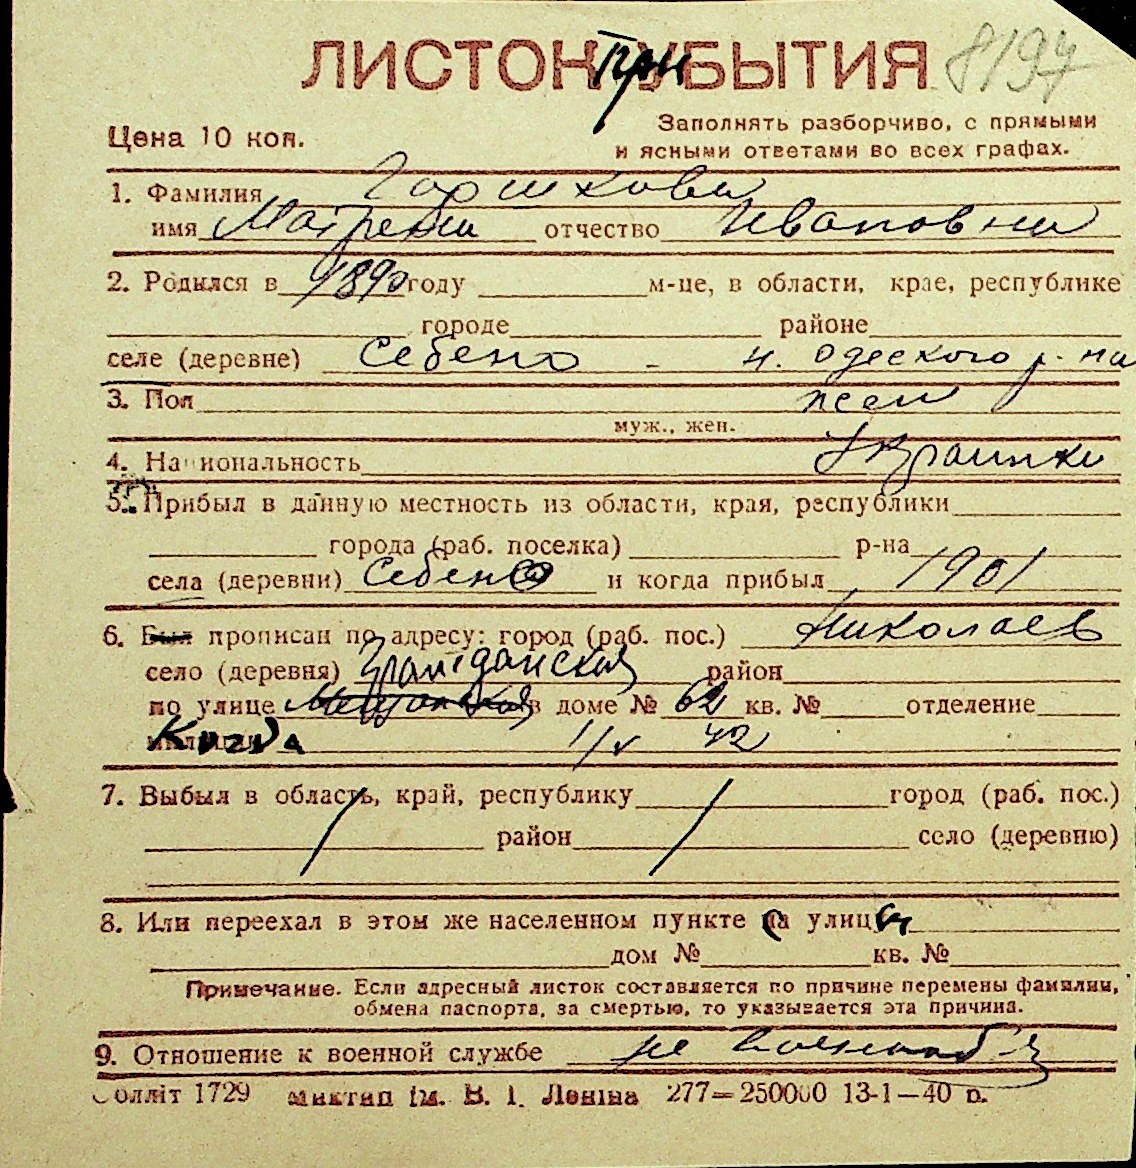 ЛИСТОК ПРИБЫТИЯ 8197
Цена 10 коп.
Заполнять разборчиво, с прямыми
и ясными ответами во всех графах.
1. Фамилия Горшкова
имя Матрена отчество Ивановна
2. Родился в 1890 году м-це, в области, крае, республике
городе районе
селе (деревне) Себено - н. одеского р-на
3. Пол жен
муж., жен.
4. Национальность Украинка
5. Прибыл в данную местность из области, края, республики
города (раб. поселка) р-на
села (деревни) Себено и когда прибыл 1901
6. Был прописан по адресу: город (раб. пос.) Николаев
село (деревня) Гражданская район
по улице в доме № 62 кв. № отделение
1/V 42
7. Выбыл в область, край, республику город (раб. пос.)
район село (деревню)
8. Или переехал в этом же населенном пункте с улицы
дом № кв. №
Примечание. Если адресный листок составляется по причине перемены фамилии,
обмена паспорта, за смертью, то указывается эта причина.
9. Отношение к военной службе не военнооб-я
Облліт 1729 ім. В. І. Леніна 277—250000 13-1—40 р.